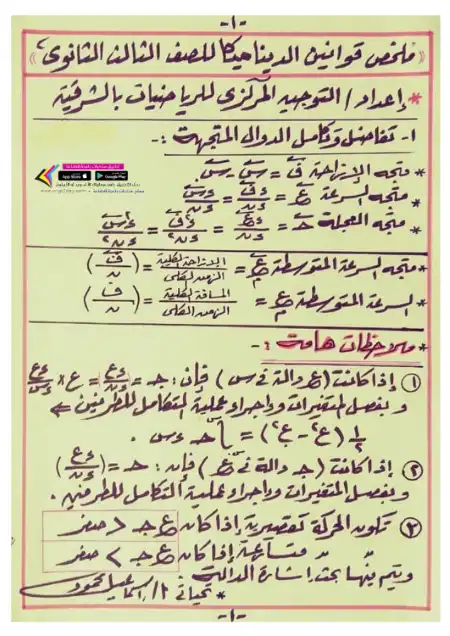 -١-
ملخص قوانين الديناميكا للصف الثالث الثانوى
* إعداد / التوجيه المركزى للرياضيات بالشرقية
١- تفاضل وتكامل الدوال المتجهة :-
* متجه الإزاحة ف = س - س.
* متجه السرعة ع = ءف/ءن = ءس/ءن
* متجه العجلة حـ = ءع/ءن = ء٢ف/ءن٢ = ء٢س/ءن٢
* متجه السرعة المتوسطة ع م = الإزاحة الكلية / الزمن الكلى = (ف/ن)
* السرعة المتوسطة ع م = المسافة الكلية / الزمن الكلى = (ف/ن)
* ملاحظات هامة :-
١ إذا كانت (ع دالة فى س) فإن : جـ = ءع/ءن = ع × ءع/ءس
وبفصل المتغيرات وإجراء عملية التكامل للطرفين ⇐
١/٢ (ع٢ - ع.٢) = ∫ حـ ءس .
٢ إذا كانت (جـ دالة فى ع) فإن : حـ = (ءع/ءن)
وبفصل المتغيرات وإجراء عملية التكامل للطرفين .
٣ تكون الحركة تقصيرية إذا كان ع جـ < صفر
" " متسارعة إذا كان ع جـ > صفر
ويتم فيها بحث إشارة الدالة .
* تحياتى / أ/ إسماعيل محمود
-١-